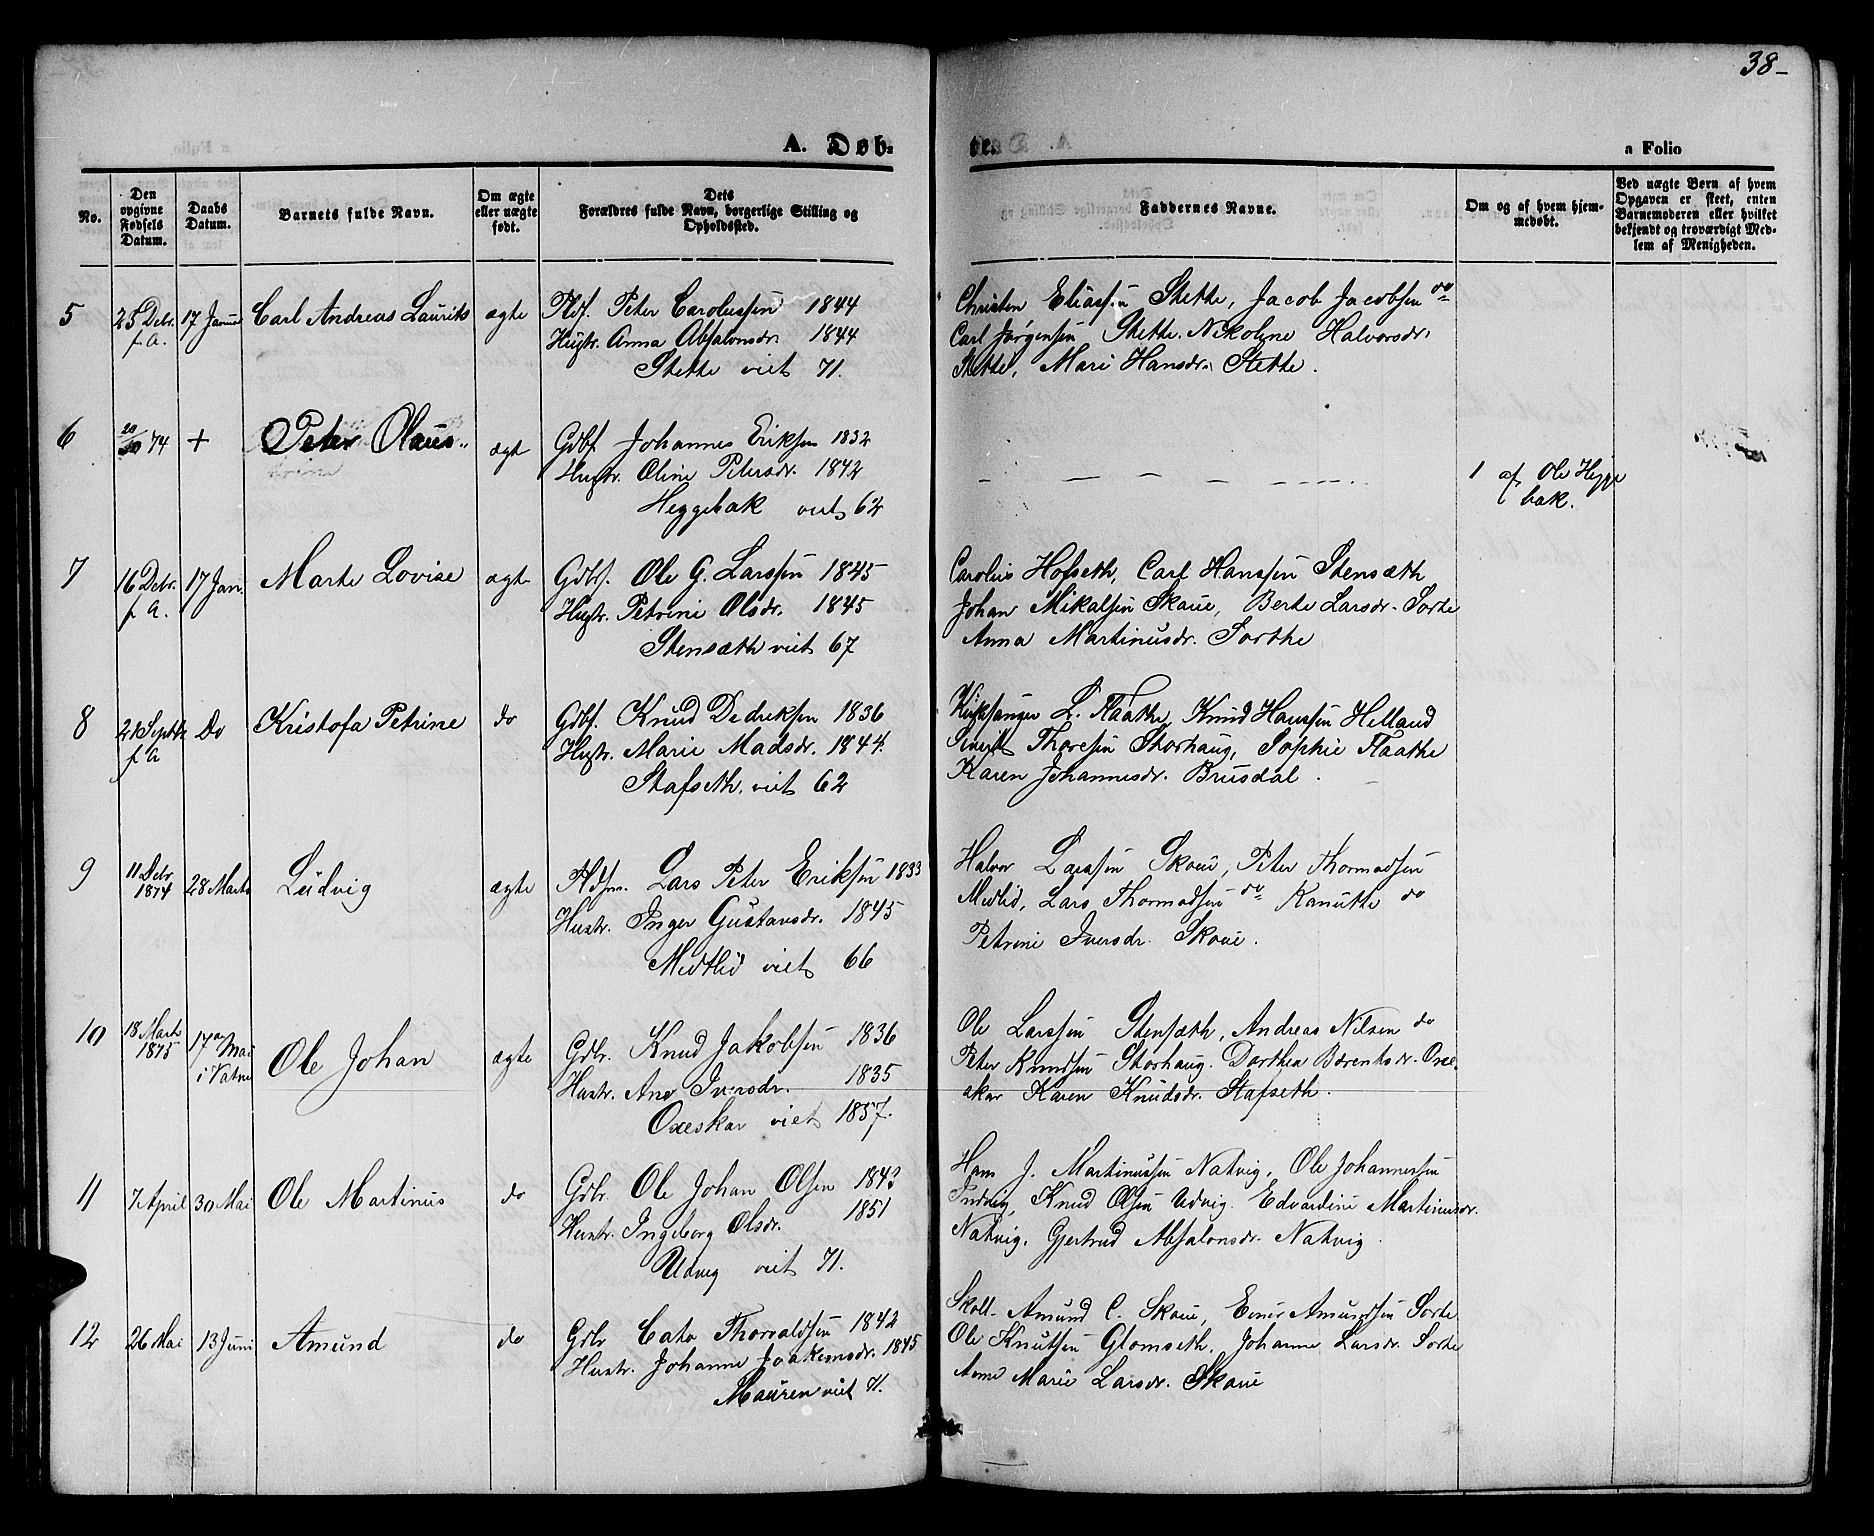 38-
A. Døb-
te.
a Folio
No.
Den opgivne Fødsels Datum.
Daabs Datum.
Barnets fulde Navn.
Om ægte eller uægte født.
Dets Forældres fulde Navn, borgerlige Stilling og Opholdssted.
Faddernes Navne.
Om og af hvem hjem-
medøbt.
Ved uægte Børn af hvem
Opgaven er skeet, enten
Barnemoderen eller hvilket
bekjendt og troværdigt Med-
lem af Menigheden.
5 25 Debr. f. A. 17 Januar Carl Andreas Laurits ægte
Hdf. Peter Carolussen 1844
Hustr. Anna Absalonsdr. 1844
Stette viet 71.
Christen Eliassen Stette, Jacob Jacobsen do
Carl Jørgensen Stette. Nikoline Halvorsdr.
Stette, Mari Hansdr. Stette.
6 74 + Peter Olaus ægt
Gdbf. Johannes Eriksen 1832
Hustr. Oline Petersdr. 1842
Heggebak viet 62
1 af Ole Hegge
bak.
7 16 Debr. f. A. 17 Jan. Marte Lovise ægt
Gdbf. Ole G. Larssen 1845
Hustr. Petrine Olsdr. 1845
Stensæth viet 67
Carolius Hofseth, Carl Hanssen Stensæth
Johan Mikalsen Skoue, Berte Larsdr. Sorte
Anna Martinusdr. Sorthe
8 21 Septbr f A Do Kristofa Petrine do
Gdbf. Knud Dedreksen 1836
Hustr. Marie Madsdr. 1844.
Stafseth, viet 62
Kirksanger L. Flaathe, Knud Hanssen Helland
Sivert Thoresen Storhaug, Sophie Flaathe
Karen Johannesdr. Brusdal.
9 11 Debr 1874 28 Marts Ludvig ægte
Hdsm. Lars Peter Eriksen 1833
Hustr. Inger Gustavsdr. 1845
Midtlid viet 66
Halvor Larssen Skoue, Peter Thormodsen
Midlid, Lars Thormodsen do Kanutte do
Petrine Iversdr. Skoue.
10 18 Marts 1875 17 Mai i Vatne Ole Johan ægte
Gdbr. Knud Jakobsen 1836
Hustr. Ane Iversdr. 1835
Oxeskar viet 1857.
Ole Larssen Stensæth, Andreas Nilsen do
Peter Knudsen Storhaug. Dorthea Bærentsdr. Oxe-
skar Karen Knudsdr. Stafseth.
11 7 April 30 Mai Ole Martinus do
Gdbr. Ole Johan Olsen 1843
Hustr. Ingeborg Olsdr. 1851
Udvig viet 71.
Hans J. Martinussen Natvig, Ole Johannessen
Indvig, Knud Olsen Udvig. Edvardine Martinusdr.
Natvig, Gjertrud Absalonsdr. Natvig.
12 26 Mai 13 Juni Amund do
Gdbr Cato Thorvaldsen 1842
Hustr. Johanne Joakimsdr. 1845
Mauren viet 71.
Skoll. Amund C. Skoue, Einer Amundsen Sorte
Ole Knutsen Glomseth, Johanne Larsdr. Sorte
Anne Marie Larsdr. Skoue